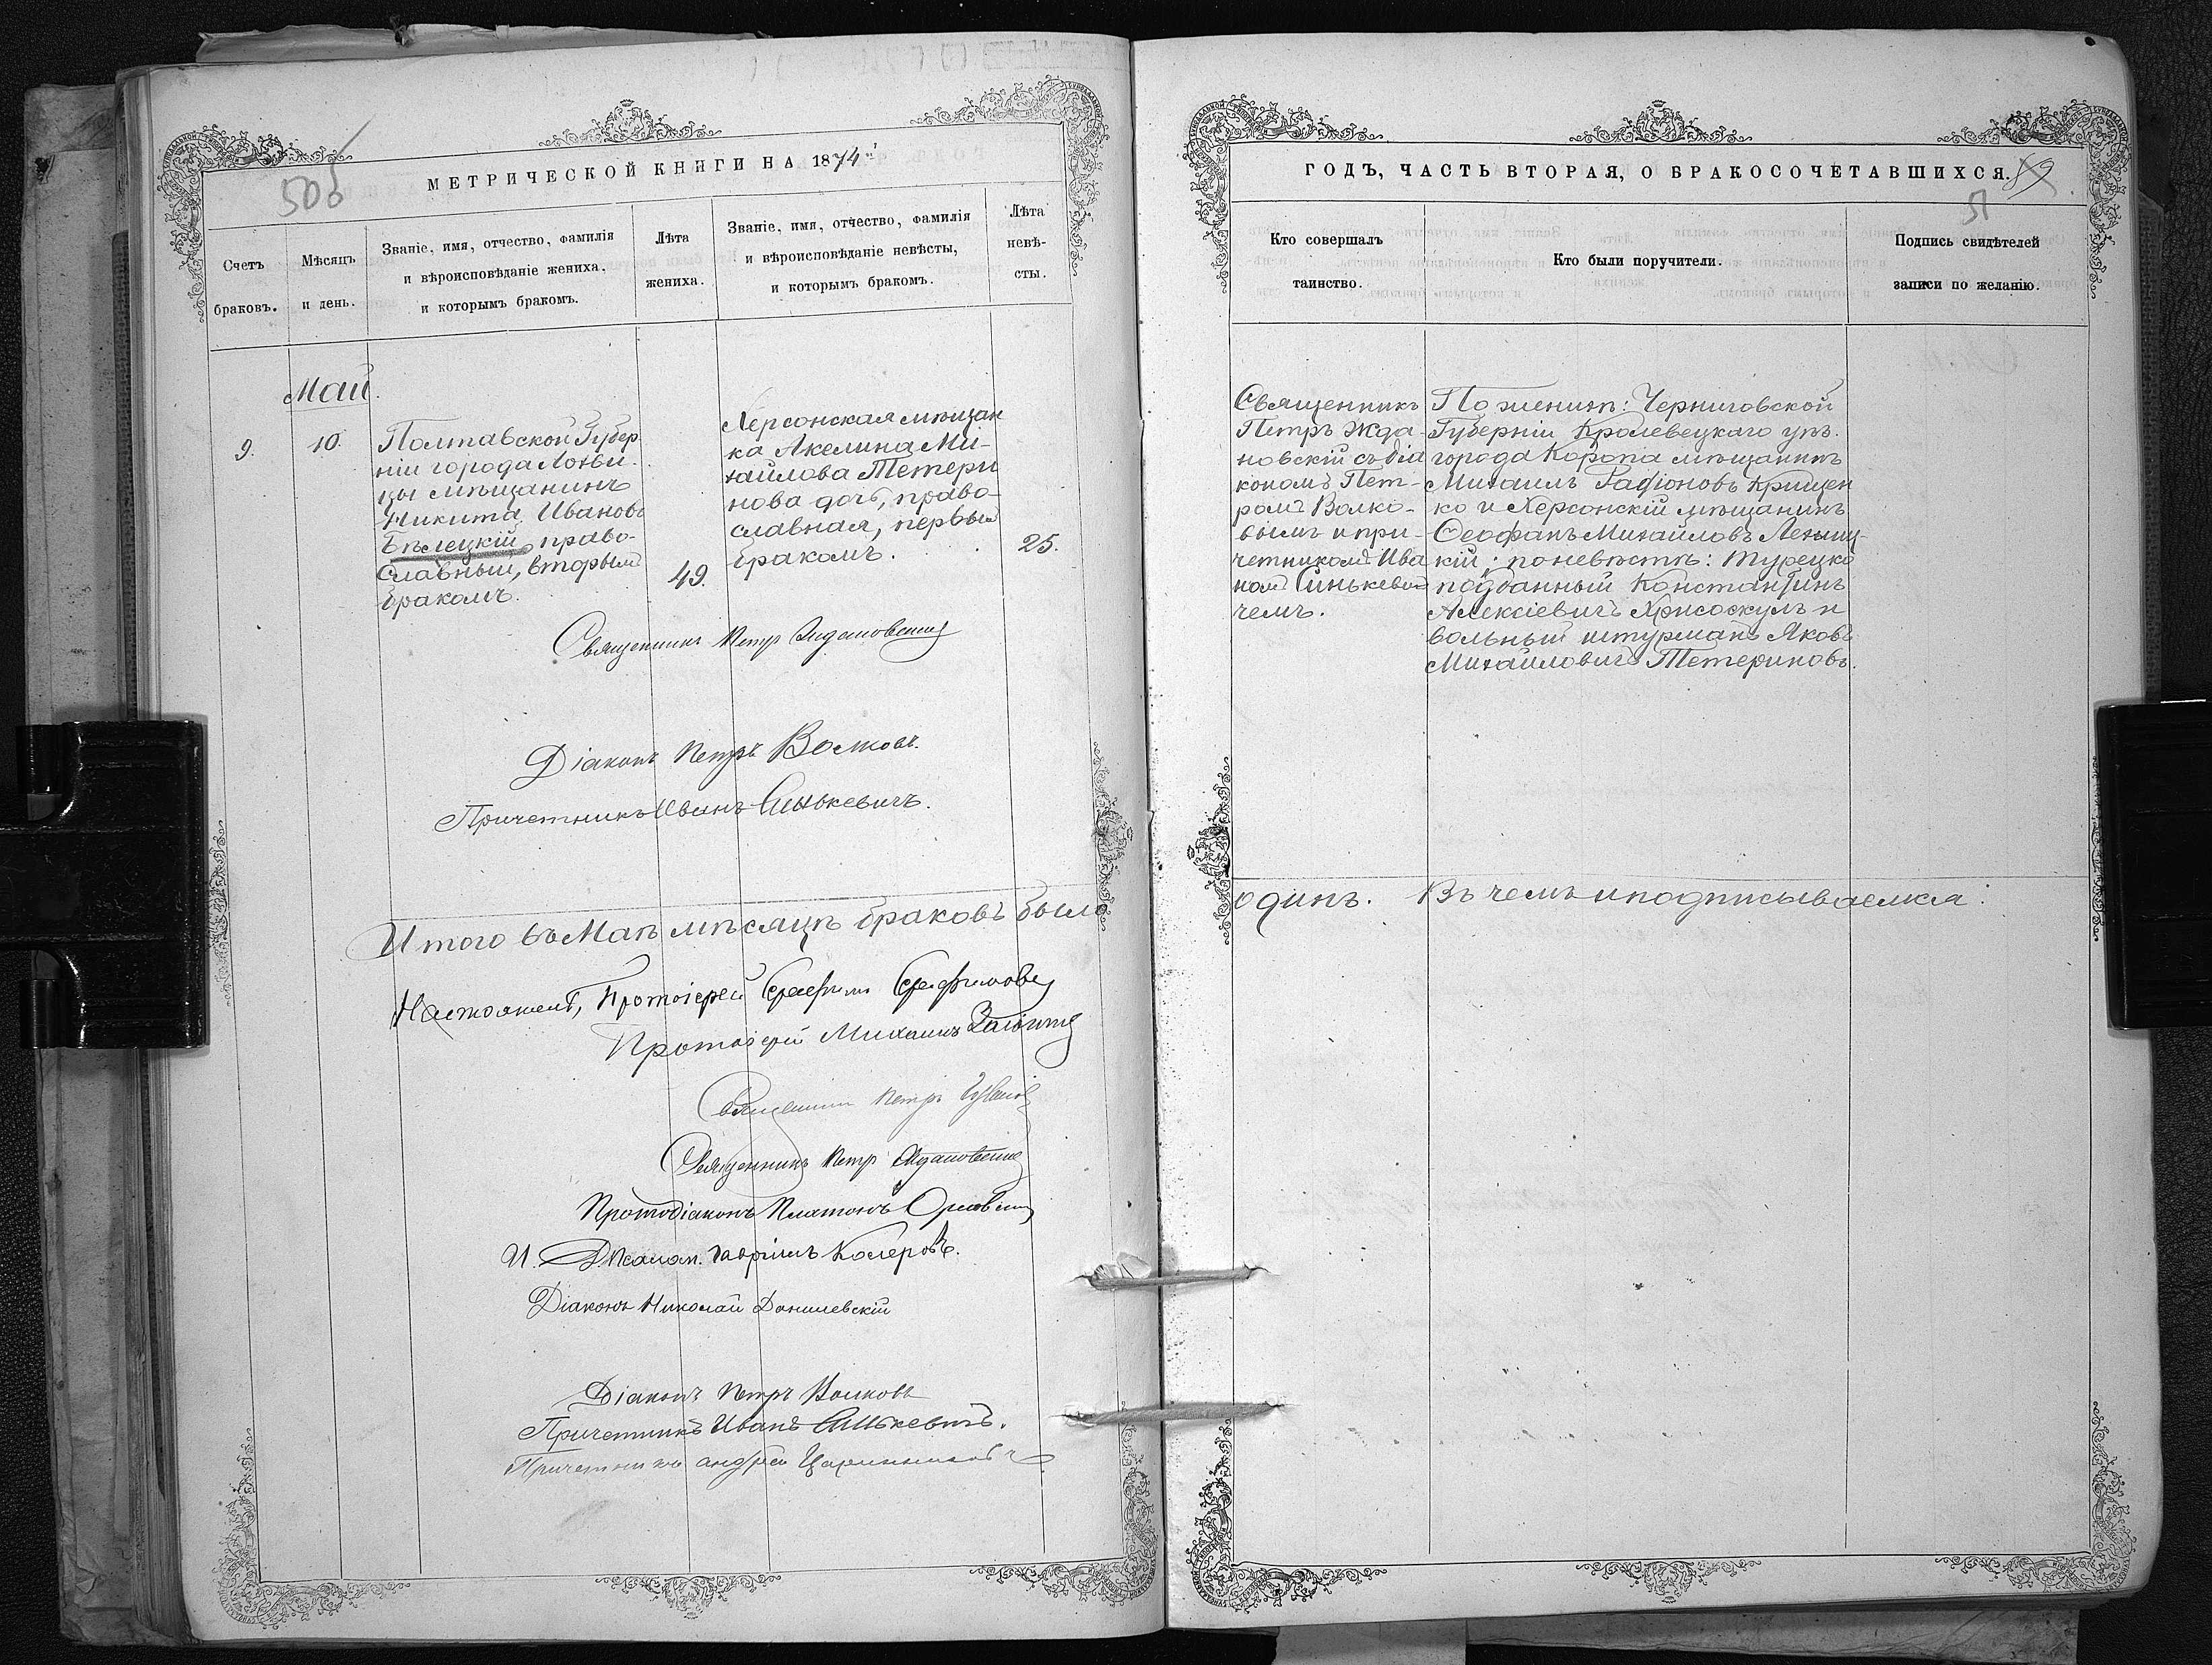 МЕТРИЧЕСКОЙ КНИГИ НА 1874й
505
Счетъ браковъ.
Мѣсяцъ и день.
Званіе, имя, отчество, фамилія
и вѣроисповѣданіе жениха.
и которымъ бракомъ.
Лѣта жениха.
Званіе, имя, отчество, фамилія
и вѣроисповѣданіе невѣсты,
и которымъ бракомъ.
Лѣта
невѣ-
сты.
Май.
9.
10.
Полтавской Губер
ніи города Лохви-
цы мѣщанинъ
Никита Ивановъ
Бѣлецкій, право-
славный, вторым
бракомъ.
49.
Херсонская мѣщан
ка Акелина Ми-
хайлова Тетери
нова дочь, право-
славная, первым
бракомъ.
25.
Священникъ Петръ Ждановскій
Діаконъ Петръ Волковъ.
Причетникъ Иванъ Синькевичъ.
Итого въ Маѣ мѣсяцѣ браковъ было
Настоятель, Протоіерей Серафимъ Серафимовъ
Протоіерей Михаилъ
Священникъ Петръ
Священникъ Петръ Ждановскій
Протодіаконъ Платонъ Орловскій
И. Д. Псалом. Гавріилъ Колеровъ.
Діаконъ Николай Данилевскій
Діаконъ Петръ Волковъ
Причетникъ Иванъ Синькевичъ.
Причетникъ Андрей
ГОДЪ, ЧАСТЬ ВТОРАЯ, О БРАКОСОЧЕТАВШИХСЯ.
51
Кто совершалъ
таинство.
Кто были поручители.
Подпись свидѣтелей
записи по желанію.
Священникъ
Петръ Жда-
новскій съ діа
кономъ Пет-
ромъ Волко-
вымъ и при-
четникомъ Ива
номъ Синькеви
чемъ.
По женихѣ: Черниговской
Губерніи Кролевецкаго уѣз.
города Коропа мѣщанинъ
Михаилъ Радіоновъ Крищен
ко и Херсонскій мѣщанинъ
Ѳеофанъ Михайловъ
кій; по невѣстѣ: турецко
подданный Константинъ
Алексіевичъ Хрисоскулъ и
вольный штурманъ Яковъ
Михайловичъ Тетериновъ.
одинъ. Въ чемъ и подписываемся: